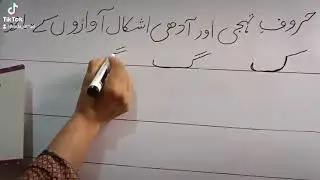 TikTok
حروف تہجی اور آدھی اشکال آوازوں کے
ک گ گ